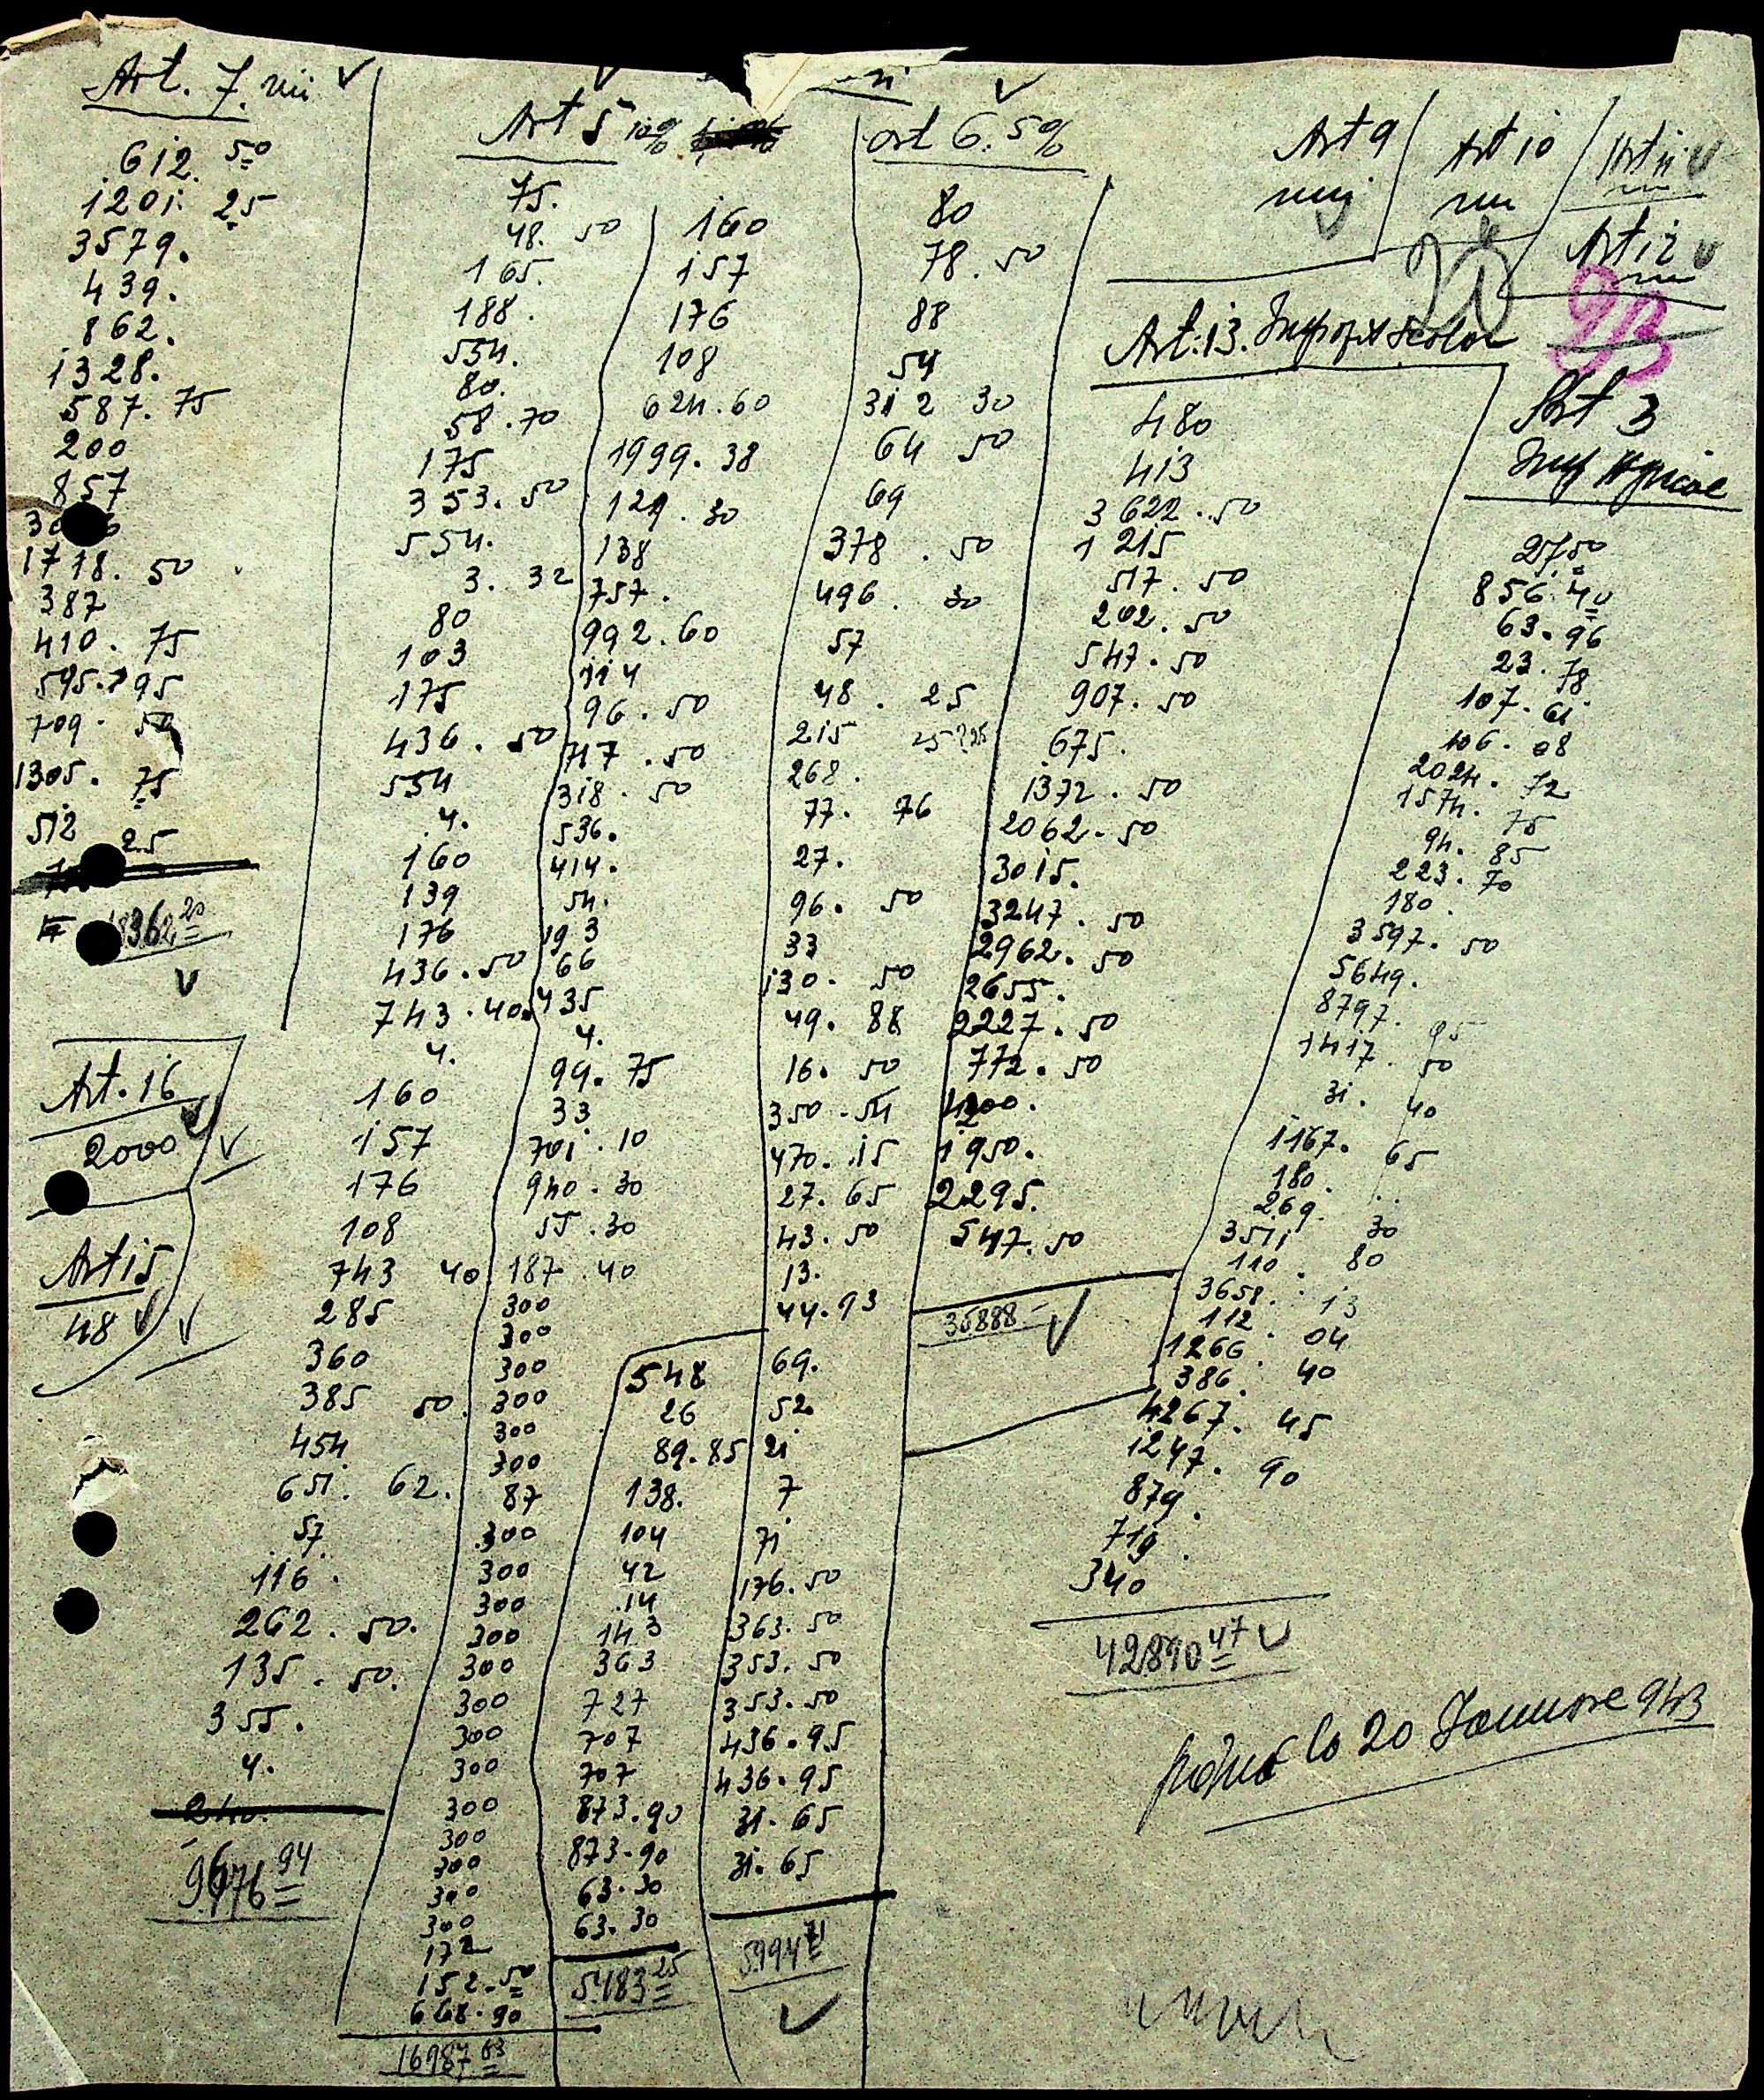 Art. 7. mii
612. 50
1201. 25
3579.
439.
862.
1328.
587. 75
200
857
1718. 50
387
410. 75
595. 95
709. 50
1305. 75
512 25
18362 20
Art. 16
2000
Art 15
48
Art 5 10%
75.
48. 50
165.
188.
554.
80.
58. 70
175
353. 50
554.
3. 32
80
103
175
436. 50
554
4.
160
139
176
436. 50
743. 40
4.
160
157
176
108
743 40
285
360
385 50
454
651. 62.
57
116.
262. 50.
135. 50.
355.
4.
9676 94
160
157
176
108
624. 60
1999. 38
129. 30
138
757.
992. 60
114
96. 50
717. 50
318. 50
536.
414.
54.
193
66
435
4.
99. 75
33
701. 10
940. 30
55. 30
187. 40
300
300
300
300
300
300
87
300
300
300
300
300
300
300
300
300
300
300
300
300
172
152. 50
668. 90
16987 63
548
26
89. 85
138.
104
42
14
143
363
727
707
707
873. 90
873. 90
63. 30
63. 30
5483 25
art 6. 5%
80
78. 50
88
54
312 30
64 50
69
378. 50
496. 30
57
48. 25
215
268.
77. 76
27.
96. 50
33
130. 50
49. 88
16. 50
350. 54
470. 15
27. 65
43. 50
13.
44. 93
69.
52.
21
7
71
176. 50
363. 50
353. 50
353. 50
436. 95
436. 95
31. 65
31. 65
5994 71
Art 9
Art 10
Art 11
Art 12
Art. 13.
480
413
3622. 50
1215
517. 50
202. 50
547. 50
907. 50
675.
1372. 50
2062. 50
3015.
3247. 50
2962. 50
2655.
2227. 50
772. 50
1200.
1950.
2295.
547. 50
35888
Art 3
27. 50
856. 40
63. 96
23. 78
107. 61
106. 08
2024. 72
1574. 75
94. 85
223. 70
180.
3597. 50
5649.
8797. 95
1417. 50
31. 40
1167. 65
180.
269.
3511 30
110. 80
3658. 13
112. 04
1266. 40
386.
4267. 45
1247. 90
879.
719.
340
42890 47
la 20 Januare 943